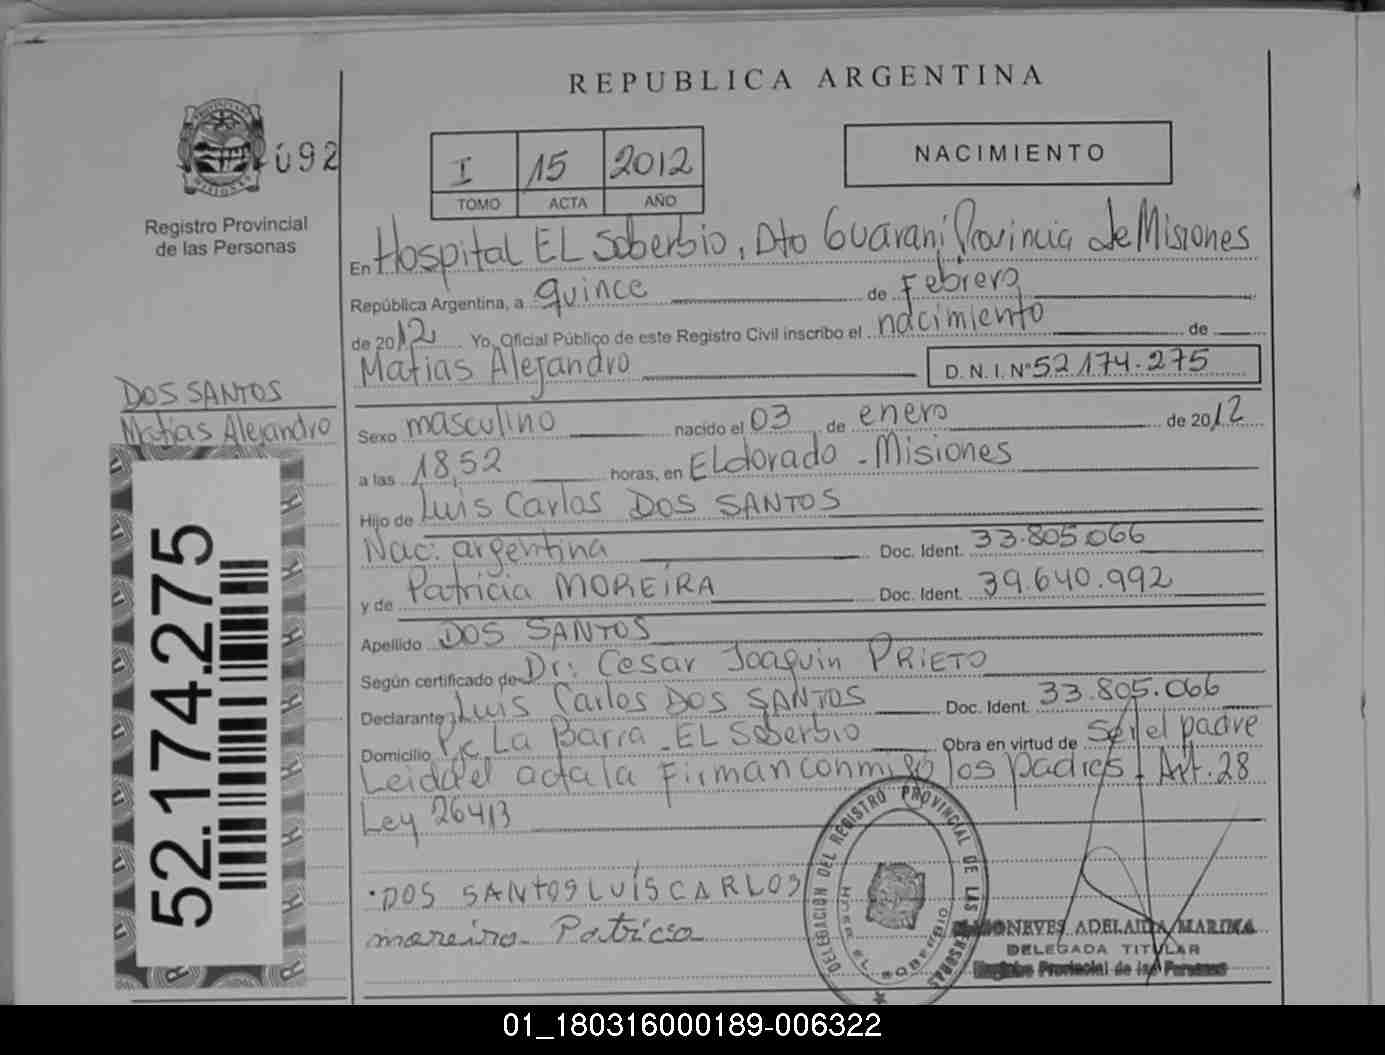 REPUBLICA ARGENTINA
PROVINCIA
MISIONES
092
Registro Provincial
de las Personas
I 15 2012
TOMO ACTA AÑO
NACIMIENTO
En Hospital EL Soberbio, Dto Guarani Provincia de Misiones
República Argentina, a quince de Febrero
de 2012 Yo, Oficial Público de este Registro Civil inscribo el nacimiento de
Matias Alejandro D.N.I. Nº 52.174.275
DOS SANTOS
Matias Alejandro
52.174.275
Sexo masculino nacido el 03 de enero de 2012
a las 18,52 horas, en ELdorado - Misiones
Hijo de Luis Carlos DOS SANTOS
Nac. argentina Doc. Ident. 33.805.066
y de Patricia MOREIRA Doc. Ident. 39.640.992
Apellido DOS SANTOS
Según certificado de Dr: Cesar Joaquin PRIETO
Declarante Luis Carlos DOS SANTOS Doc. Ident. 33.805.066
Domicilio La Barra - EL Soberbio Obra en virtud de ser el padre
Leida el acta la Firman conmigo los padres. Art. 28
Ley 26413
DOS SANTOS LUIS CARLOS
moreira Patricia
DELEGACION DEL REGISTRO PROVINCIAL DE LAS PERSONAS
EL SOBERBIO
ADELAIDA MARINA
DELEGADA TITULAR
Registro Provincial de las Personas
01_180316000189-006322